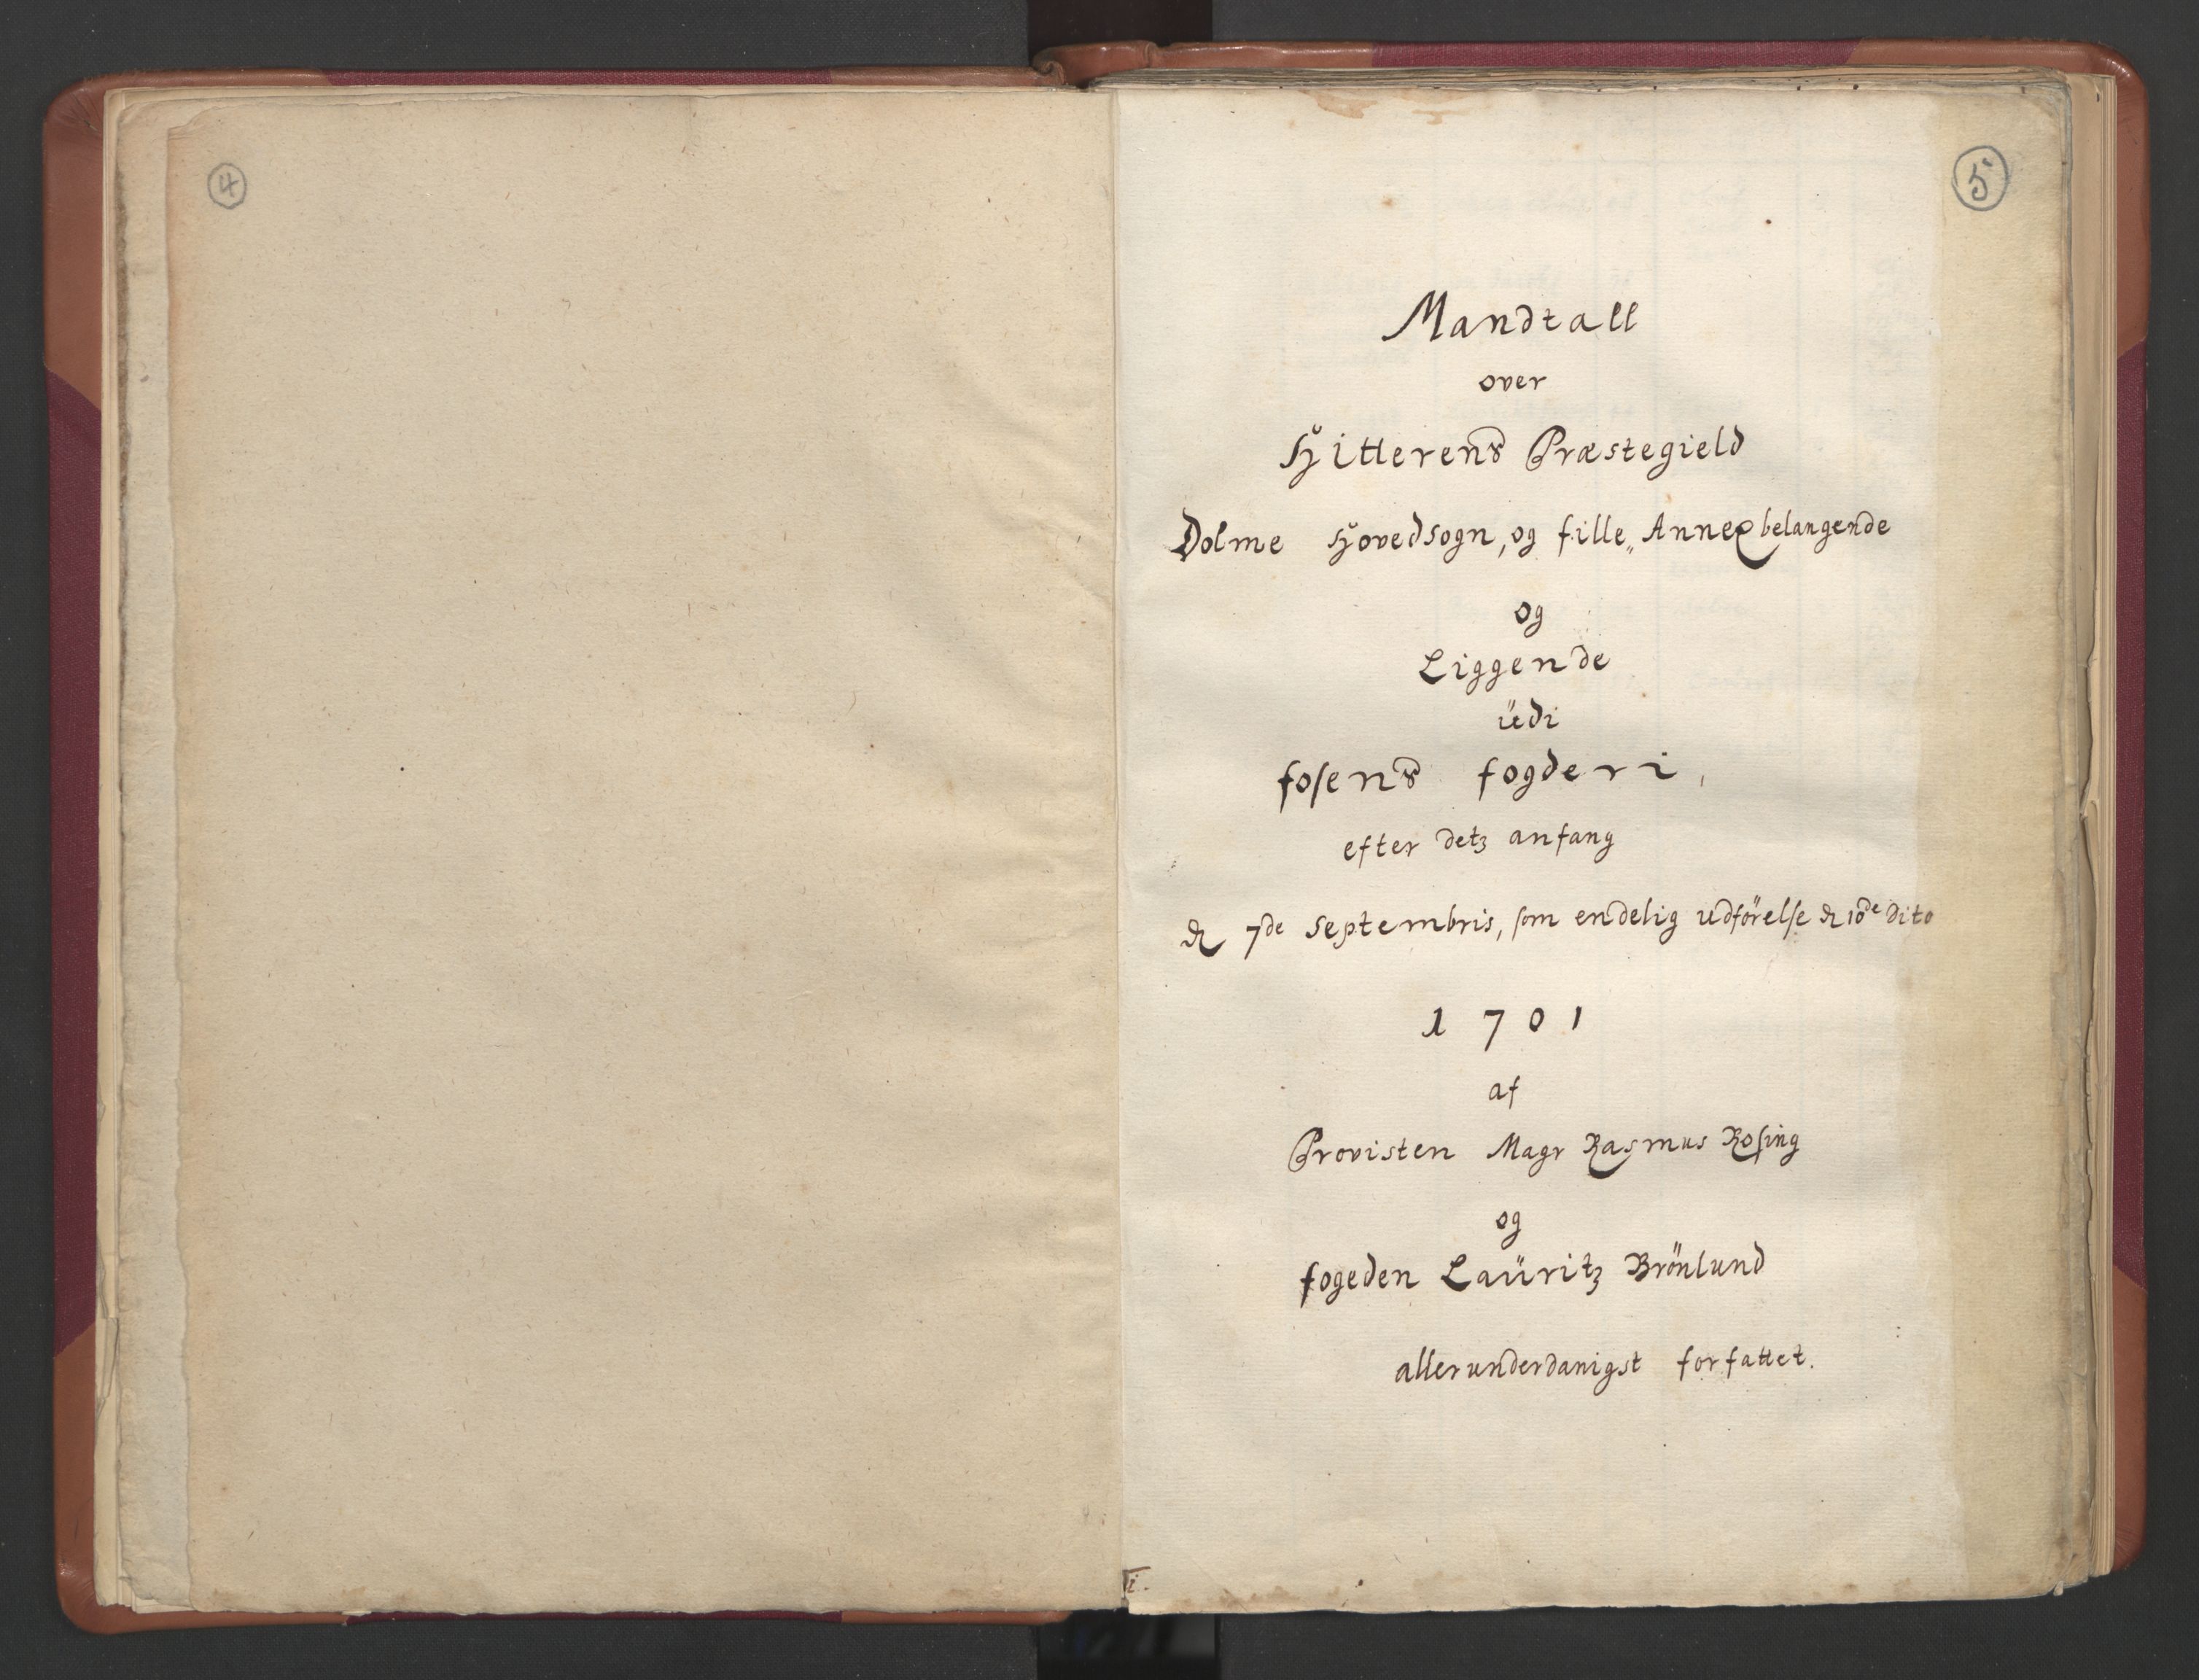 4
5
Mandtall
over
Hitterens Præstegield
Dolme Hovedsogn, og fille„ Annex belangende
og
Liggende
üdi
fosens fogderi,
efter detz anfang
d 7de Septembris, som endelig udförelse d 10de dito
1701
af
Provisten Magr Rasmus Rosing
og
fogeden Laüritz Brönlund
allerunderdanigst forfattet.